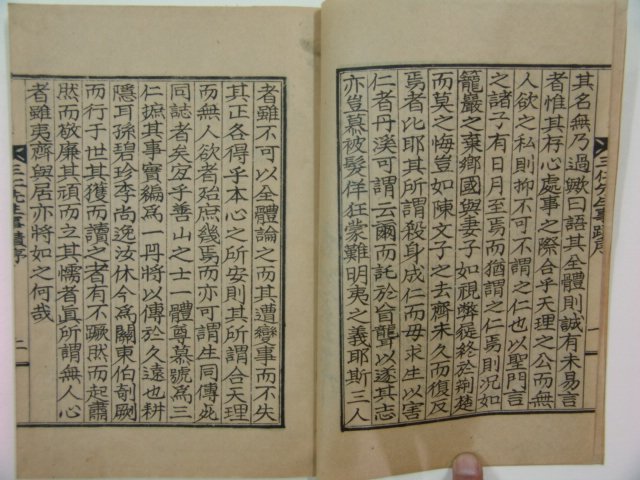 其名無乃過歟曰語其全體則誠有未易言
者惟其存心處事之際合乎天理之公而無
人欲之私則抑不可不謂之仁也以聖門言
之諸子有日月至焉而猶謂之仁焉則況如
籠巖之棄鄉國與妻子如視弊屣終於荊楚
而莫之悔豈如陳文子之去齊未久而復反
焉者比耶其所謂殺身成仁而毋求生以害
仁者丹溪可謂云爾而託於盲聾以遂其志
亦豈慕被髮佯狂蒙難明夷之義耶斯三人
三仁先生事蹟序 一
者雖不可以全體論之而其遭變事而不失
其正各得乎本心之所安則其所謂合天理
而無人欲者殆庶幾焉而亦可謂生同傳死
同誌者矣宜乎善山之士一體尊慕號爲三
仁摭其事實編爲一冊將以傳於久遠也耕
隱耳孫碧珍李尚逸汝休今爲關東伯剞厥
而行于世其獲而讀之者有不蹶然而起肅
然而敬廉其頑而立其懦者眞所謂無人心
者雖夷齊與居亦將如之何哉
三仁先生事蹟序 二